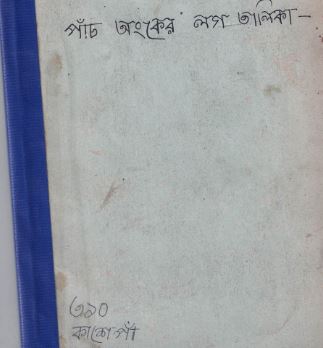 পাঁচ অংকের লগ তালিকা -
৩৯০
কাশেপাঁ